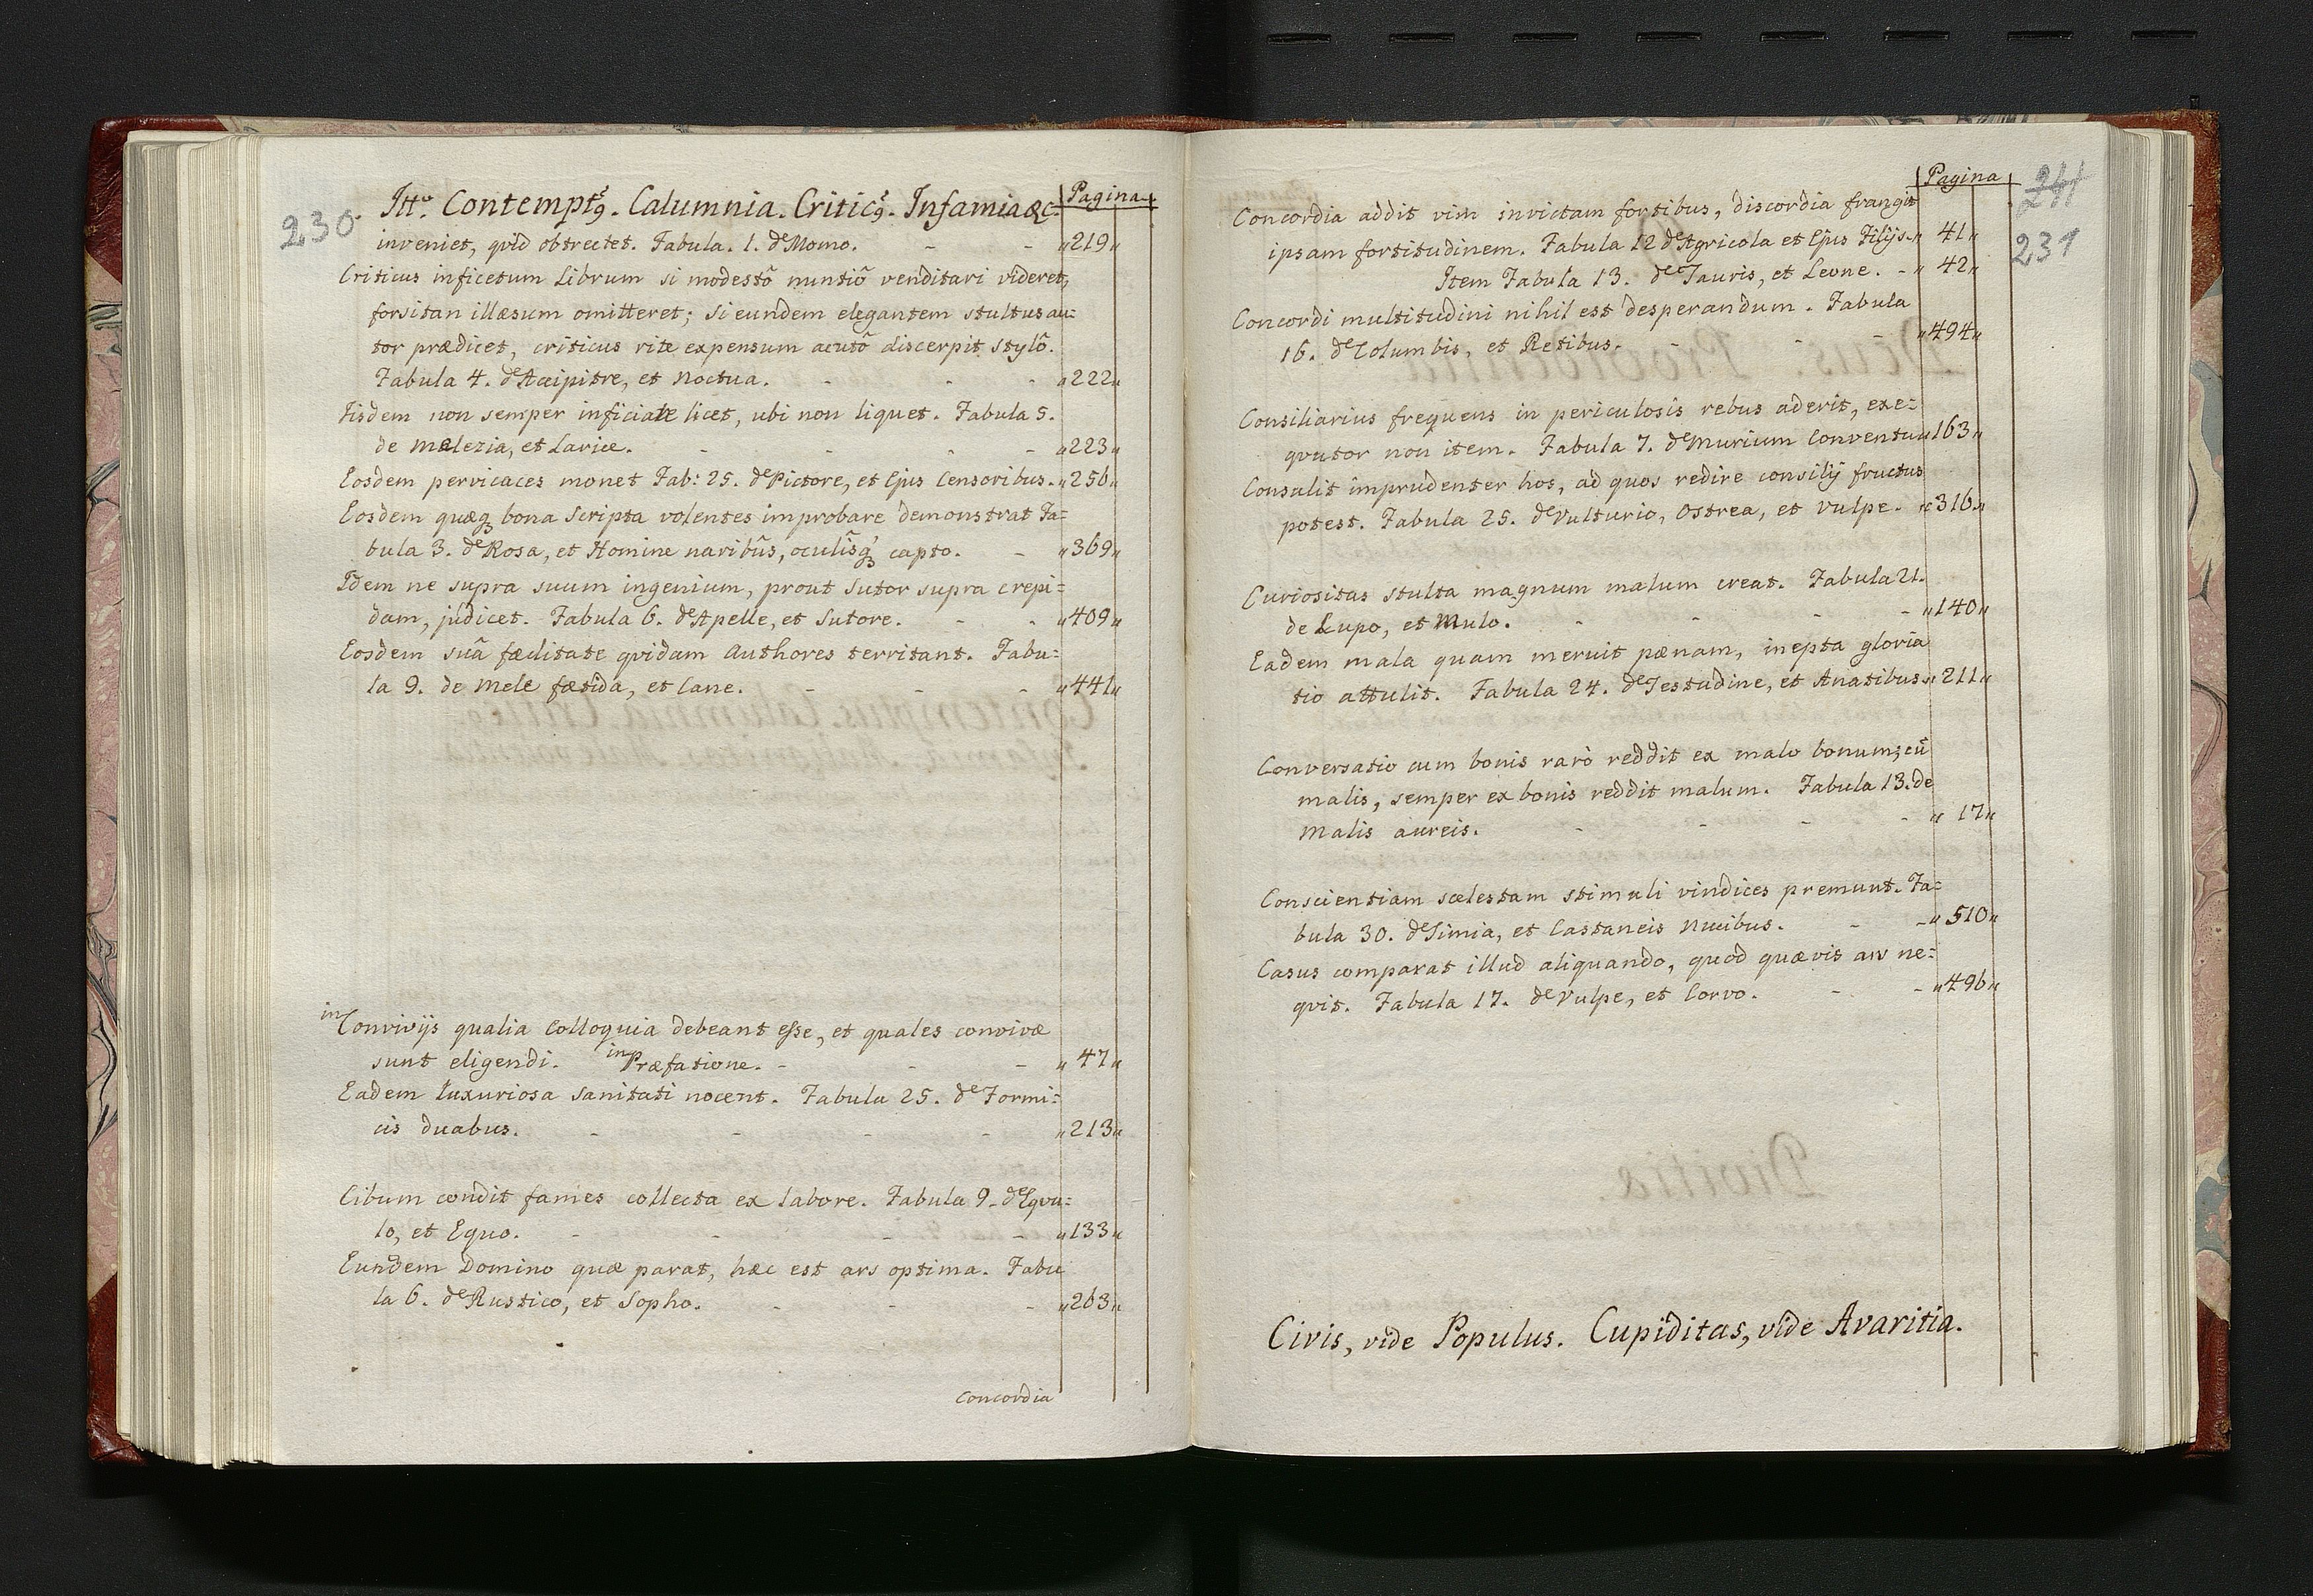 230.
Itto. Contempt9. Calumnia. Critic9. Infamia &c. Pagina
inveniet, qvid obtrectet. Fabula. 1. de Momo. - - „219„
Criticus inficetum Librum si modestô nuntiô venditari videret,
forsitan illæsum omitteret; si eundem elegantem stultus au=
tor prædicet, criticus rite expensum acutô discerpit stylô.
Fabula 4. de Accipitre, et Noctua. - - - „222„
Iisdem non semper inficiale licet, ubi non liquet. Fabula 5.
de Malezia, et Larice. - - - - „223„
Eosdem pervicaces monet Fab: 25. de Pictore, et Ejus Censoribus. „256„
Eosdem quæq3 bona Scripta volentes improbare demonstrat Fa=
bula 3. de Rosa, et Homine naribûs, oculîsq3 capto. - „369„
Idem ne supra suum ingenium, prout Sutor supra crepi=
dam, judicet. Fabula 6. de Apelle, et Sutore. - - „409„
Eosdem suâ fæditate qvidam Authores territant. Fabu=
la 9. de Mele fætida, et Cane. - - - „441„
in Convivijs qualia Colloquia debeant esse, et quales convivæ
sunt eligendi. in Præfatione. - - - „47„
Eadem luxuriosa sanitati nocent. Fabula 25. de Formi=
cis duabus. - - - - „213„
Cibum condit fames collecta ex labore. Fabula 9. de Eqvu=
lo, et Equo. - - - - „133„
Eundem Domino quæ parat, hæc est ars optima. Fabu
la 6. de Rustico, et Sopho. - - - „263„
Concordia
Pagina
241
231
Concordia addit vim invictam fortibus, discordia frangit
ipsam fortitudinem. Fabula 12 de Agricola et Ejus Filijs. „41„
Item Fabula 13. de Tauris, et Leone. - „42„
Concordi multitudini nihil est desperandum. Fabula
16. de Columbis, et Retibus. - - - „494„
Consiliarius frequens in periculosis rebus aderit, exe=
qvutor non item. Fabula 7. de Murium Conventu „163„
Consulit imprudenter hos, ad quos redire consilij fructus
potest. Fabula 25. de Vulturio, Ostrea, et Vulpe. „316„
Curiositas stulta magnum malum creat. Fabula 21.
de Lupo, et Mulo. - - - - „140„
Eadem mala quam meruit pænam, inepta gloria
tio attulit. Fabula 24. de Testudine, et Anatibus „211„
Conversatio cum bonis rarò reddit ex malo bonum; cū
malis, semper ex bonis reddit malum. Fabula 13. de
Malis aureis. - - - - „17„
Conscientiam scelestam stimuli vindices premunt. Fa=
bula 30. de Simia, et Castaneis Nucibus. - - „510„
Casus comparat illud aliquando, quod quævis ars ne=
qvit. Fabula 17. de Vulpe, et Corvo. - - „496„
Civis, vide Populus. Cupiditas, vide Avaritia.